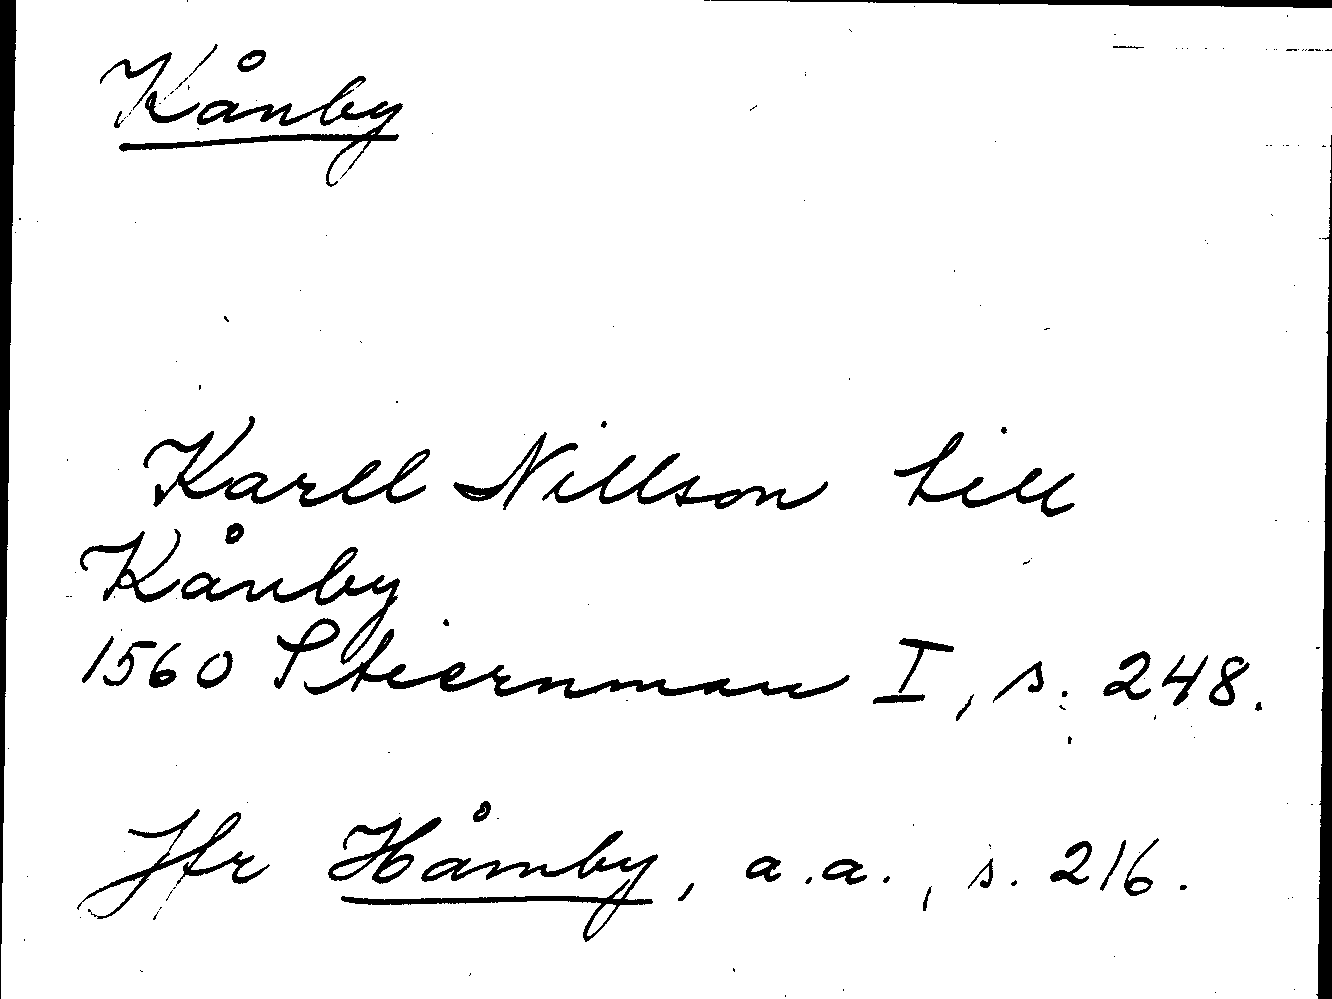 Kånby
Karll Nillson till
Kånby
1560 Stiernman I, s. 248.
Jfr Håmby, a.a., s. 216.